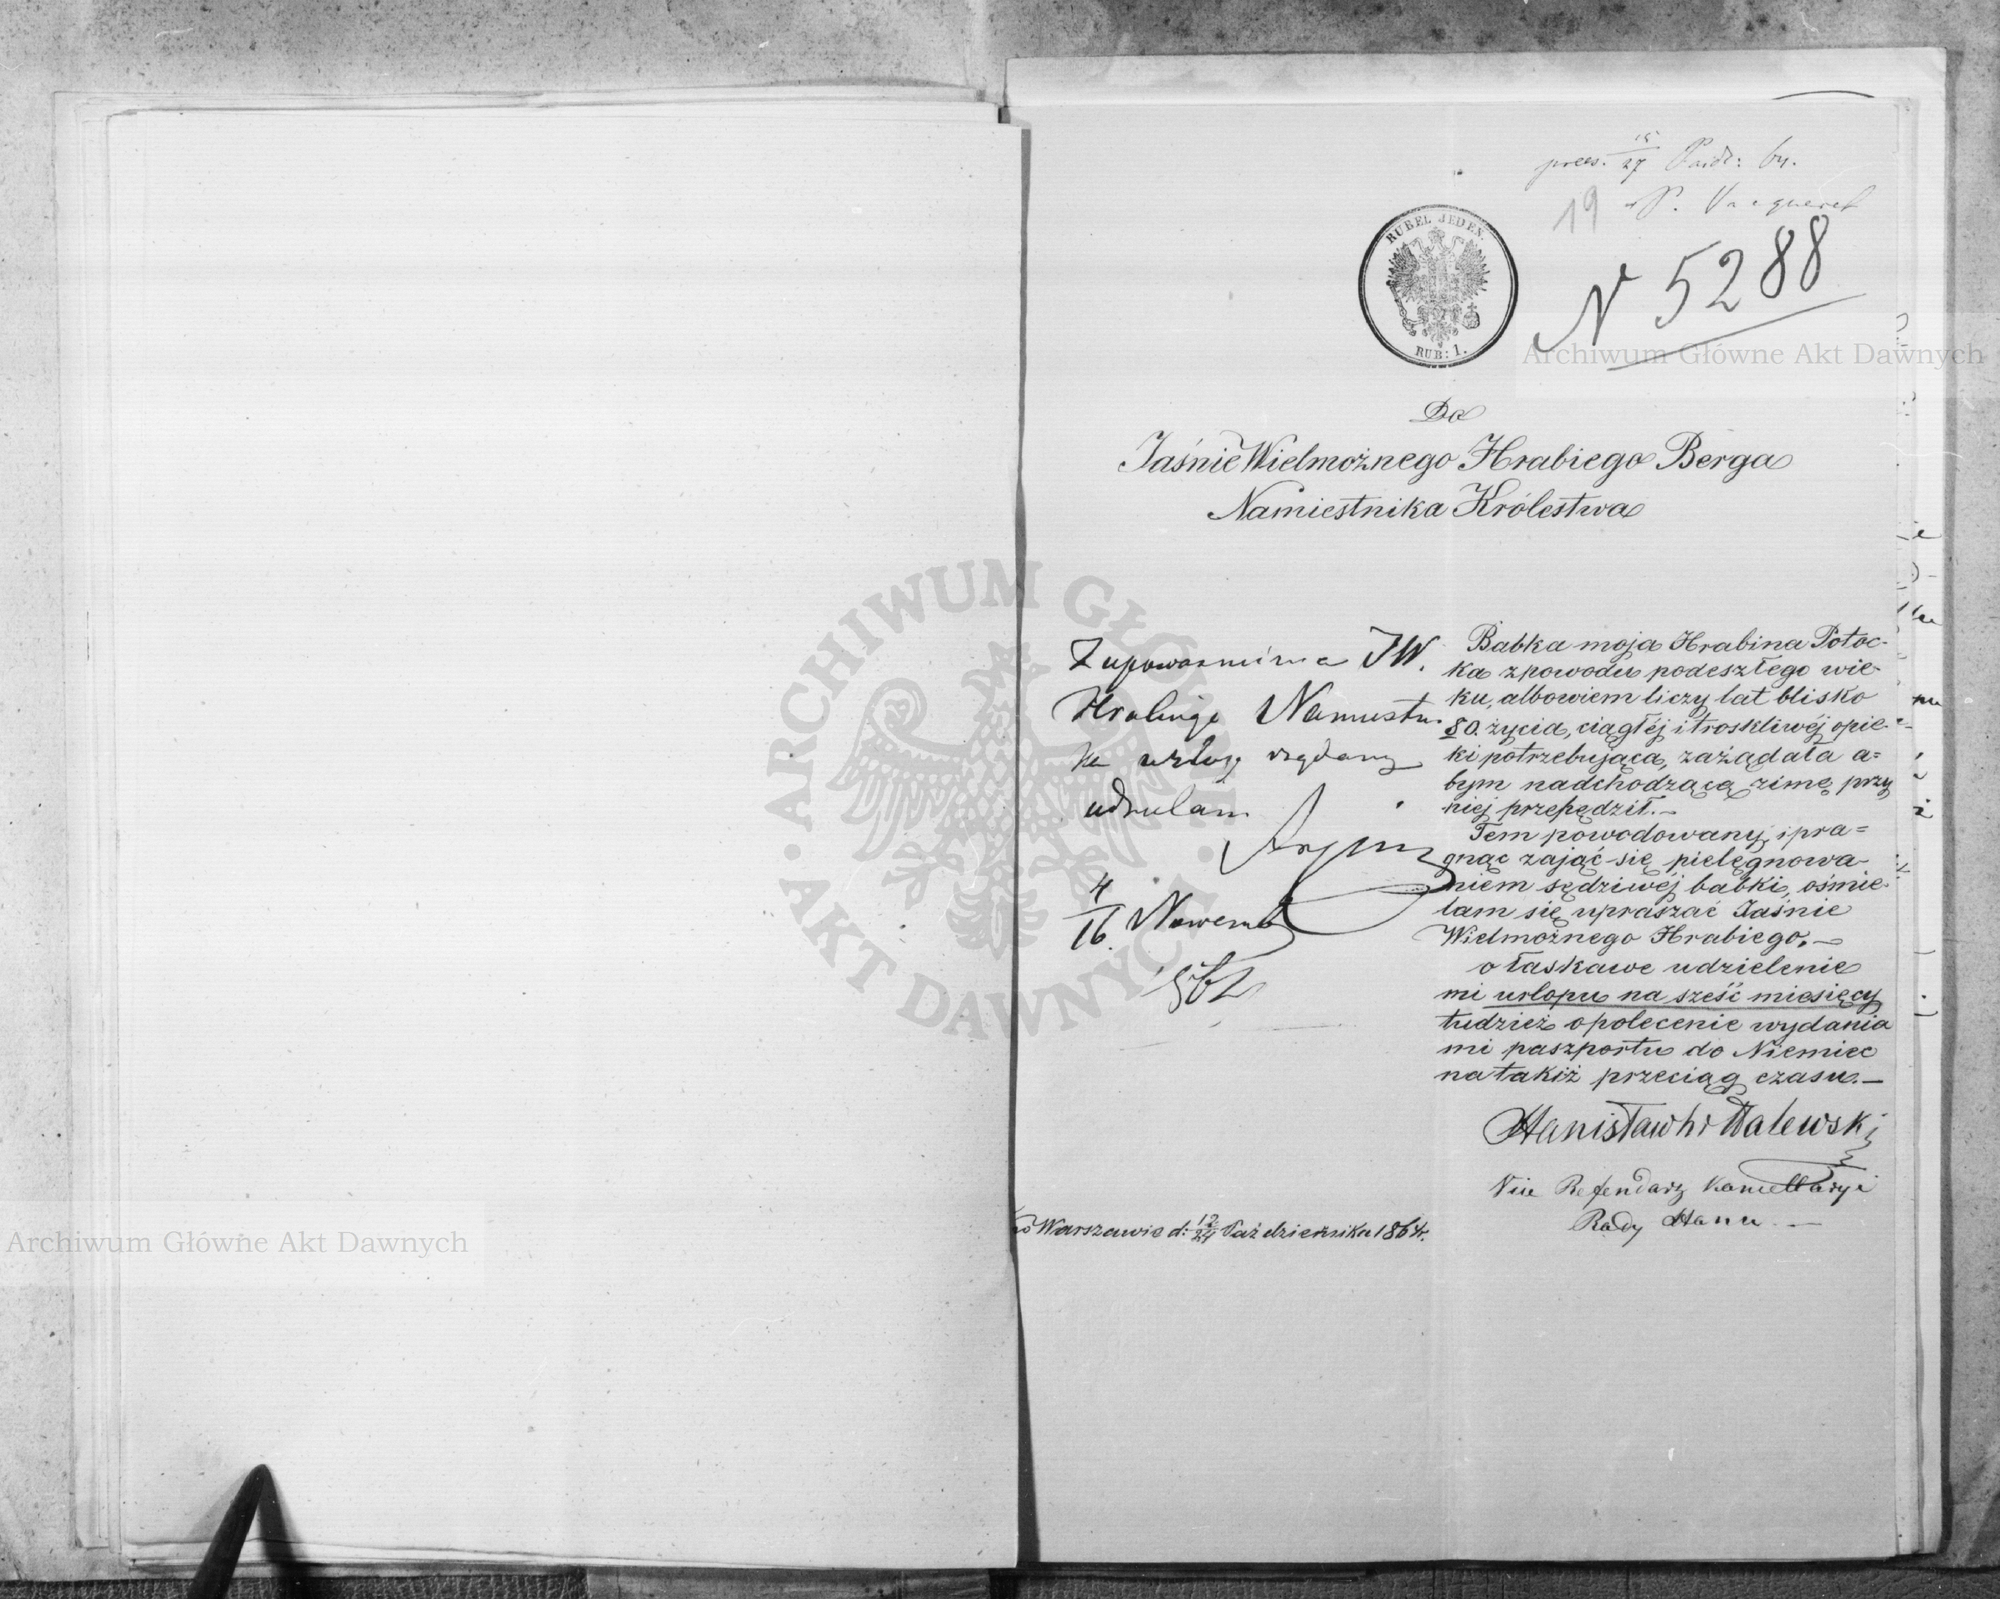 prees. 15/27 Paźd: by.
19
RUBEL JEDEN.
RUB: 1.
N 5288
Archiwum Główne Akt Dawnych
Do
Jaśnie Wielmożnego Hrabiego Berga
Namiestnika Królestwa
ARCHIWUM GŁÓWNE AKT DAWNYCH
Z upoważnienia JW.
Hrabiego Namiestni-
ka urlop żądany
udzielam
4/16 Novemb
864
Babka moja Hrabina Potoc-
ka z powodu podeszłego wie-
ku, albowiem liczy lat blisko
80. życia, ciągłéj i troskliwéj opie-
ki potrzebująca, zażądała a=
bym nadchodzącą zimę przy
niéj przepędził.—
Tem powodowany i pra=
gnąc zająć się pielęgnowa-
niem sędziwéj babki, ośmie-
lam się upraszać Jaśnie
Wielmożnego Hrabiego.—
o łaskawe udzielenie
mi urlopu na sześć miesięcy
tudzież o polecenie wydania
mi paszportu do Niemiec
na takiż przeciąg czasu.—
Stanisław hr Walewski
Vice Referendarz Kancellaryi
Rady Stanu —
w Warszawie d: 12/24 Października 1864r.
Archiwum Główne Akt Dawnych